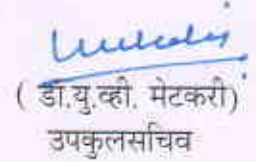 ( डॉ.यु.व्ही. मेटकरी)
उपकुलसचिव